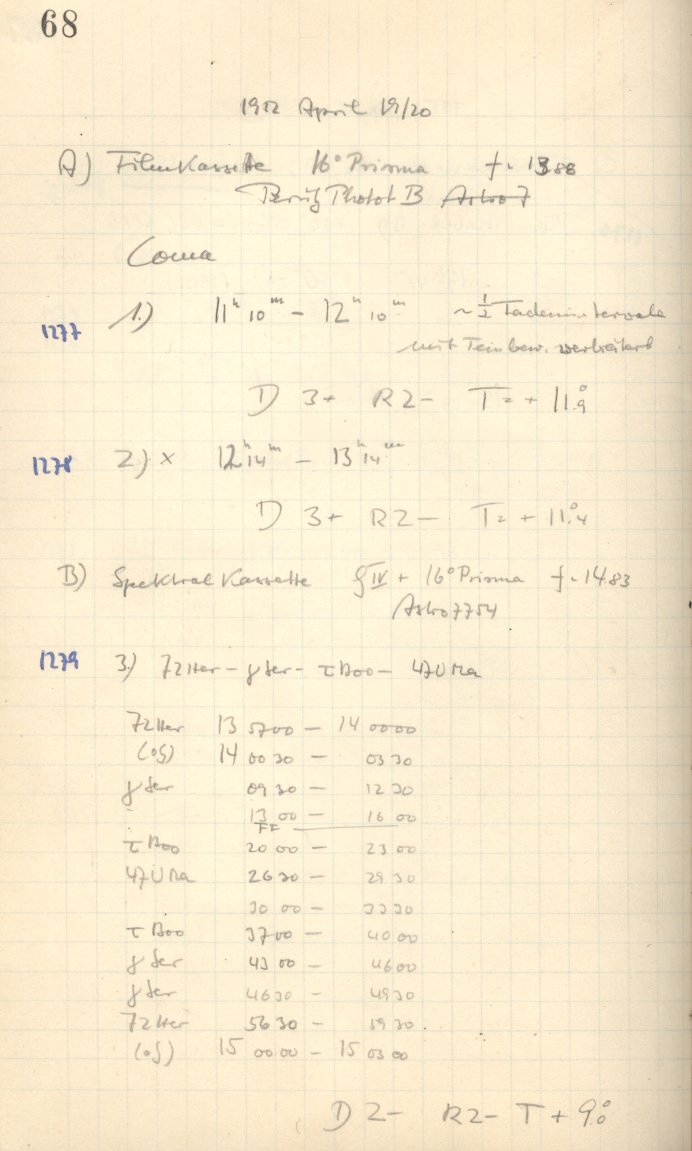 68
1952 April 19/20
A) Filmkassette 16° Prisma f = 13.88
Photot B Astro 7
Coma
1277 1.) 11h 10m – 12h 10m ~ 1/2 Fadenintervale
mit Feinbew. verbreitert
D 3+ R 2– T = + 11°.9
1278 2.) × 12h 14m – 13h 14m
D 3+ R 2– T = + 11°.4
B) Spektral Kassette IV + 16° Prisma f = 14.83
Astro 7754
1279 3.) 72 Her – γ Ser – τ Boo – 47 U Ma
72 Her 13 57 00 – 14 00 00
14 00 30 – 03 30
γ Ser 09 30 – 12 30
13 00 – 16 00
FF
τ Boo 20 00 – 23 00
47 U Ma 26 30 – 29 30
30 00 – 33 30
τ Boo 37 00 – 40 00
γ Ser 43 00 – 46 00
γ Ser 46 30 – 49 30
72 Her 56 30 – 59 30
15 00 00 – 15 03 00
D 2– R 2– T + 9°.0